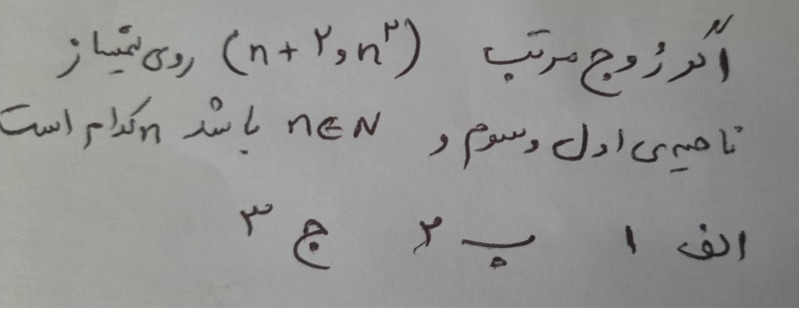 اگر زوج مرتب (n + ۲ و n^۲) روی نیمساز
ناحیه‌ی اول و سوم و n∈N باشد n کدام است
الف ۱ ب ۲ ج ۳